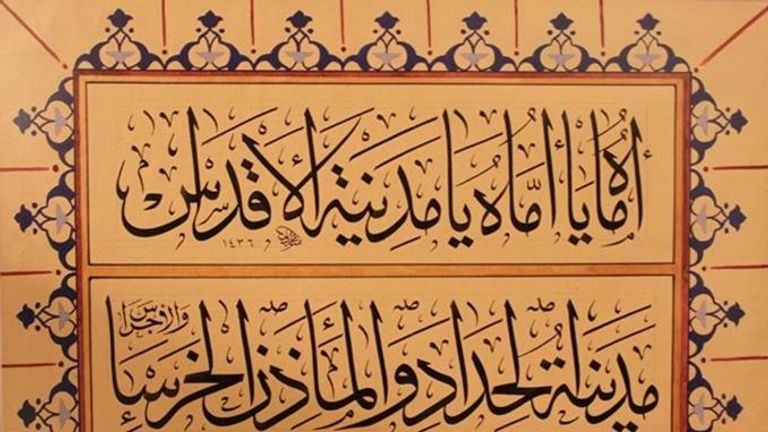 أماه يا أماه يا مدينة الأقدس
١٤٣٦
مدينة الحداد والمأذن الخرساء والأجراس